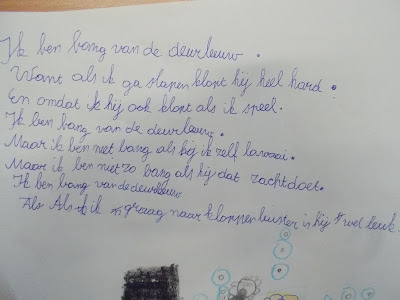 Ik ben bang van de deurleeuw.
Want als ik ga slapen klopt hij heel hard.
En omdat ik hij ook klopt als ik speel.
Ik ben bang van de deurleeuw.
Maar ik ben niet bang als hij ik zelf lawaai.
Maar ik ben niet zo bang als hij dat zacht doet.
Ik ben bang van de deurleeuw
Als Als ik graag naar kloppen luister is hij wel leuk.